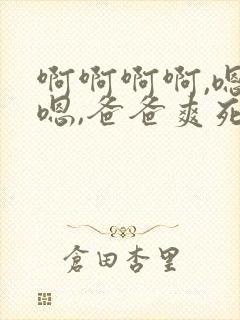 啊啊啊啊,嗯
嗯,爸爸爽死
倉田杏里